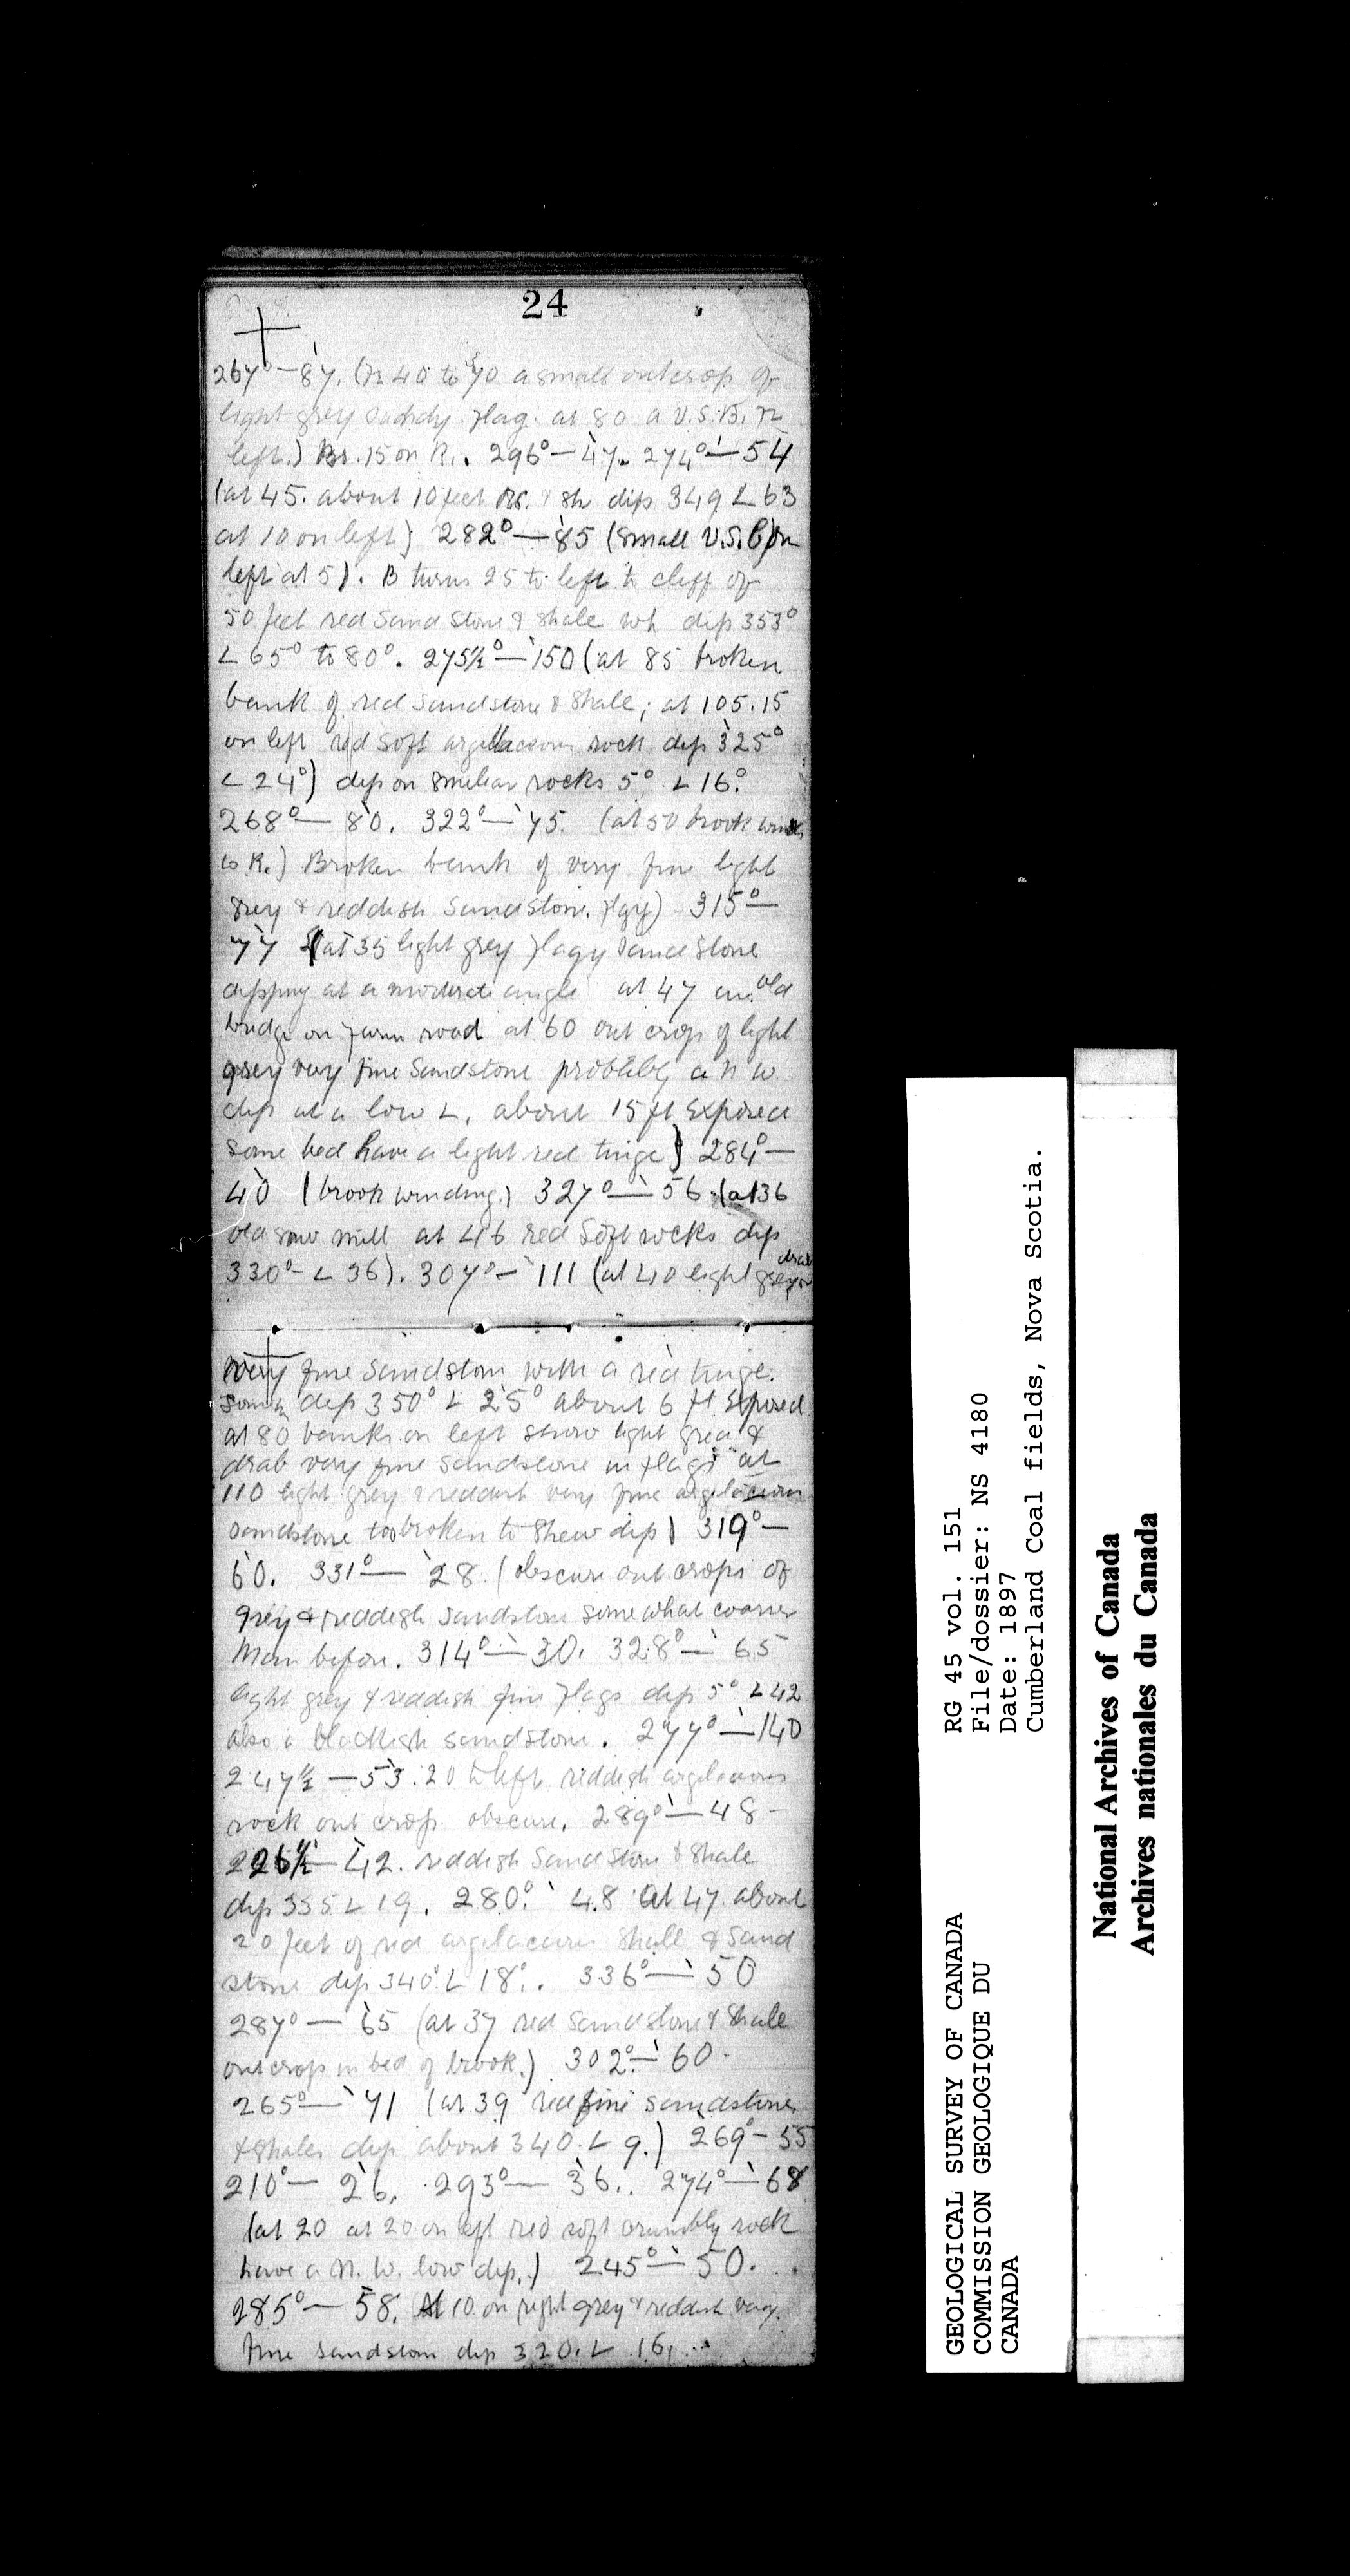 24
267°—87. (Fr 40 to 70 a small outcrop of
light grey sandy flag. at 80 a V.S.B. fr
left.) Br. 15 on R. 296°—47. 274°—54
(at 45. about 10 feet Rs. & sh dip 349 L 63
at 10 on left) 282°—85 (small V.S.B on
left at 5). B turns 25 to left to cliff of
50 feet red sandstone & shale wh dip 353°
L 65° to 80°. 275½°—150 (at 85 broken
bank of red sandstone & shale; at 105. 15
on left red soft argillaceous rock dip 325°
L 24°) dip on similar rocks 5° L 16°.
268°—80. 322°—75. (at 50 brook winds
to R.) Broken bank of very fine light
grey & reddish sandstone. flgy) 315°—
77 (at 35 light grey flagy sandstone
dipping at a moderate angle at 47 an old
bridge on farm road at 60 out crop of light
grey very fine sandstone probably a N W
dip at a low L, about 15 ft Exposed
some bed have a light red tinge) 284°—
40 (brook winding.) 327°—56 (at 36
old saw mill at 46 red soft rocks dip
330°- L 36). 307°—111 (at 40 light grey or drab
very fine sandston with a red tinge.
dip 350° L 25° about 6 ft Exposed
at 80 banks on left show light grea &
drab very fine sandstone in flags at
110 light grey & reddish very fine argilaceous
sandstone too broken to shew dip) 319°—
60. 331°—28. (obscure out crops of
grey & reddish sandston somewhat coarser
than before. 314°—30. 328°—65
light grey & reddish fine flags dip 5° L 42
also a blackish sandstone. 277°—140
247½—53. 20 to left reddish argelaceous
rock out crop obscure. 289°—48-
226½—42. reddish sandston & shale
dip 355 L 19. 280°. 48 at 47 about
20 feet of red argelaceous shale & sand
stone dip 340° L 18°. 336°—50
287°—65 (at 37 red sandstone & shale
outcrop in bed of brook.) 302°—60.
265°—71 (at 39 red fine sandstones
& shales dip about 340. L 9.) 269°-55
210°—26. 293°—36.. 274°—68
(at 20 at 20 on left red soft crumbly rock
have a N. W. low dip.) 245°—50.
285°—58. At 10 on right grey & reddish very
fine sandston dip 320. L 16.
GEOLOGICAL SURVEY OF CANADA
COMMISSION GEOLOGIQUE DU
CANADA
RG 45 vol. 151
File/dossier: NS 4180
Date: 1897
Cumberland Coal fields, Nova Scotia.
National Archives of Canada
Archives nationales du Canada